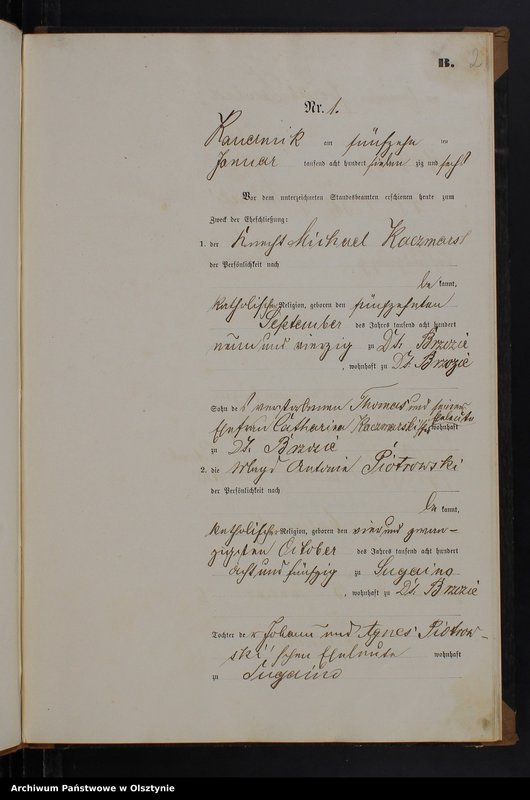 B. 2
Nr. 1.
Kauernik am fünfzehn ten
Januar tausend acht hundert sieben zig und sechs
Vor dem unterzeichneten Standesbeamten erschienen heute zum
Zweck der Eheschließung:
1. der Knecht Michael Kaczmarski
der Persönlichkeit nach
be kannt,
katholischer Religion, geboren den fünfzehnten
September des Jahrs tausend acht hundert
neun und vierzig zu Dt. Brzozie
, wohnhaft zu Dt. Brzozie
Sohn des verstorbenen Thomas und seiner
Ehefrau Catharina Kaczmarski Eheleute wohnhaft
zu Dt. Brzozie
2. die Magd Antonie Piotrowski
der Persönlichkeit nach
be kannt,
katholischer Religion, geboren den vier und zwan-
zigsten October des Jahres tausend acht hundert
acht und fünfzig zu Lugaino
, wohnhaft zu Dt. Brzozie
Tochter der Johann und Agnes Piotrow-
ski'schen Eheleute wohnhaft
zu Lugaino
Archiwum Państwowe w Olsztynie